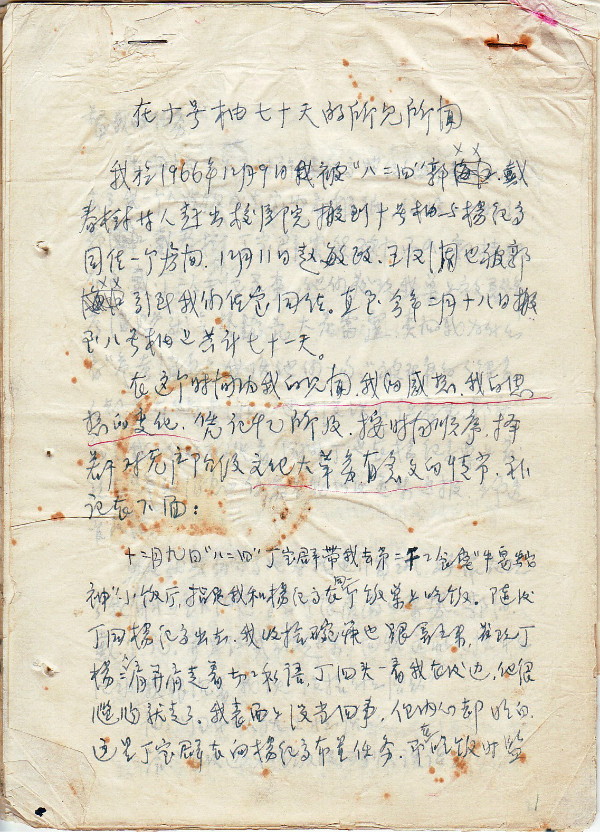 在十号楼七十天的所见所闻
我于1966年12月9日我被"八二四"郭 .戴
春树等人赶出校医院搬到十号楼与杨纪高
同住一个房间.12月11日赵敏政、王汉 也被郭
引到我们住室同住。直至今年二月十八日搬
至八号楼止共计七十一天。
在这个时间内我的见闻,我的感想、我的思
想的变化,凭记忆所及、按时间顺序、择
若干对无产阶级文化大革命有意义的情节,补
记在下面:
十二月九日"八二四"丁宝群带我去第二 工食堂"牛鬼蛇
神"小饭厅,指定我和杨纪高在 饭桌上吃饭。随后
丁同杨纪高出去.我收拾碗筷也跟着出来,发现丁
杨二 并肩走着切切私语,丁回头一看我在后边,他很
就走了。我表面上没当回事,但内心却明白
这是丁宝群在向杨纪高布置任务. 在吃饭时监